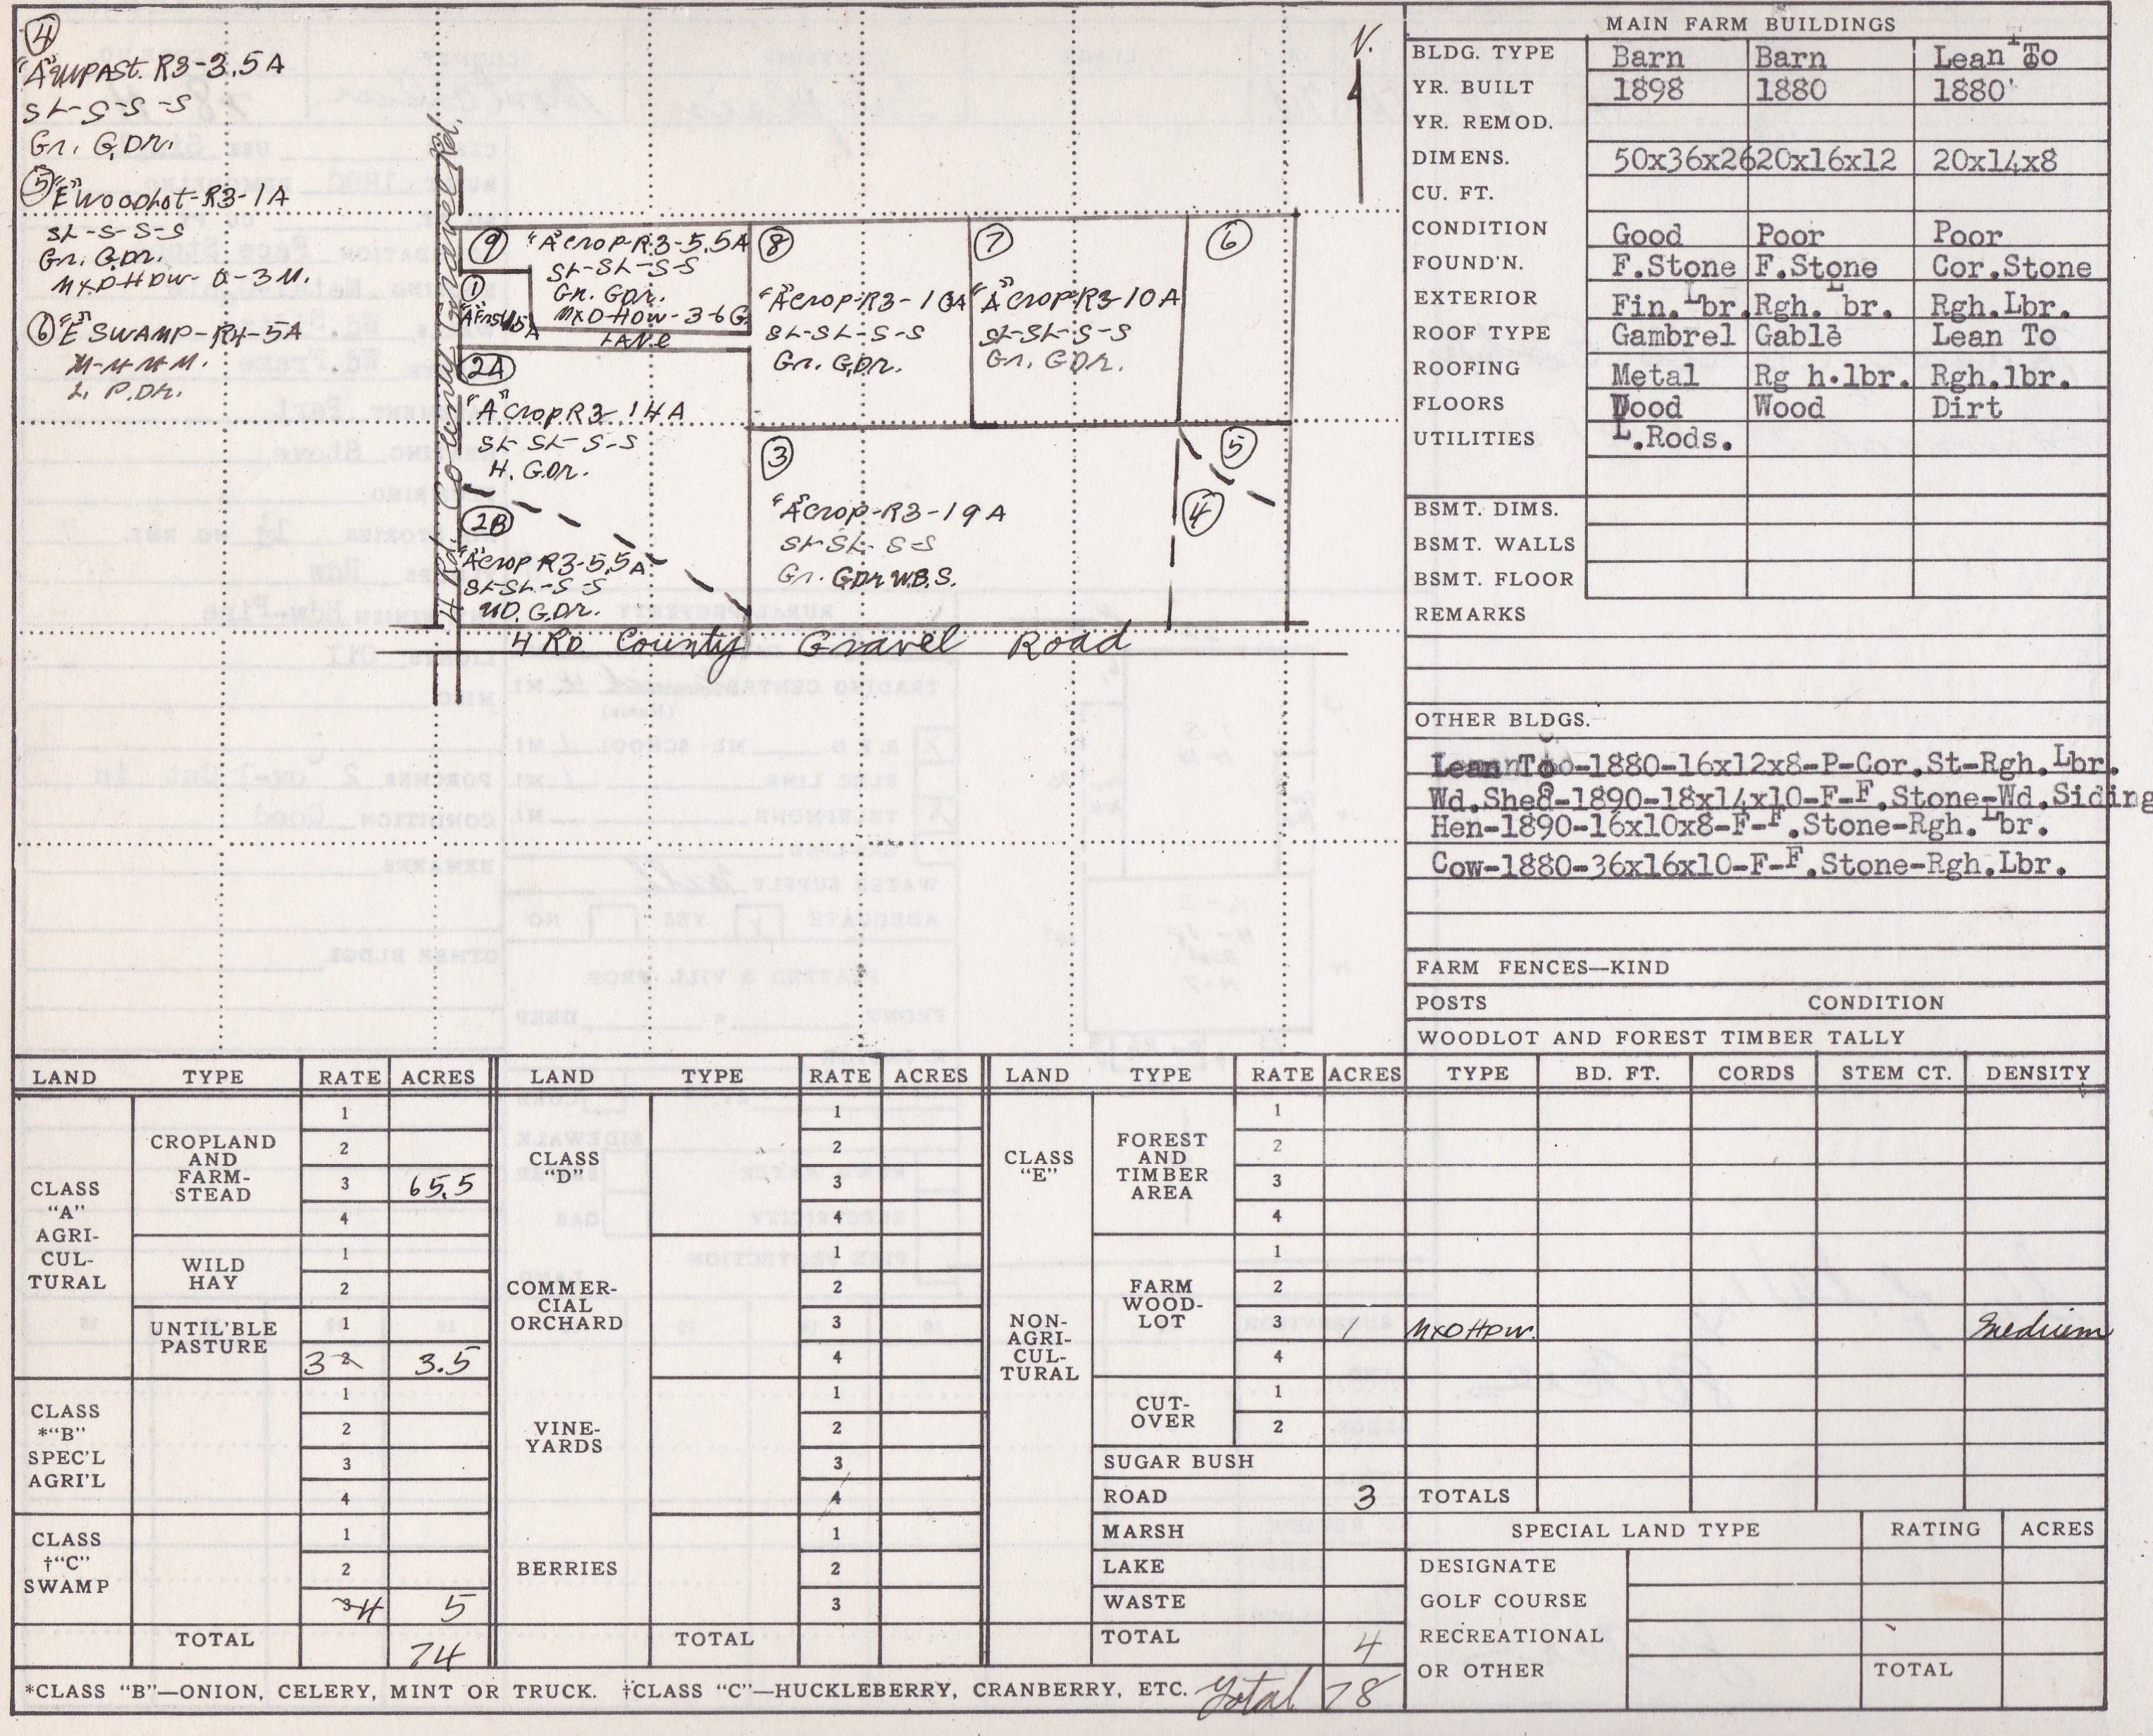 ④
"A" UPAST. R3-3.5A
SL-S-S-S
Gr. G.Dr.
⑤ "E" WOODLOT-R3-1A
SL-S-S-S
Gr. G.Dr.
MXDHDW-0-3M.
⑥ "E" SWAMP-R4-5A
M-M-M-M.
L. P.Dr.
N.
4 Rd. County Gravel Rd.
⑨ "A" CROP-R3-5.5A
SL-SL-S-S
Gr. GDr.
MXD-HDW-3-6G
①
LANE
⑧
"A" CROP-R3-10A
SL-SL-S-S
Gr. G.Dr.
⑦
"A" CROP-R3-10A
SL-SL-S-S
Gr. G.Dr.
⑥
2A
"A" CROP R3-14A
SL-SL-S-S
H. G.Dr.
2B
"A" CROP R3-5.5A
SL-SL-S-S
UD. G.Dr.
③
"A" CROP-R3-19A
SL-SL-S-S
Gr. GDr W.B.S.
⑤
④
4 RD County Gravel Road
MAIN FARM BUILDINGS
BLDG. TYPE Barn Barn Lean To
YR. BUILT 1898 1880 1880
YR. REMOD.
DIMENS. 50x36x26 20x16x12 20x14x8
CU. FT.
CONDITION Good Poor Poor
FOUND'N. F.Stone F.Stone Cor.Stone
EXTERIOR Fin. Lbr. Rgh. Lbr. Rgh.Lbr.
ROOF TYPE Gambrel Gable Lean To
ROOFING Metal Rg h.lbr. Rgh.lbr.
FLOORS Wood Wood Dirt
UTILITIES L.Rods.
BSMT. DIMS.
BSMT. WALLS
BSMT. FLOOR
REMARKS
OTHER BLDGS.
Lean To-1880-16x12x8-P-Cor.St-Rgh.Lbr.
Wd.Shed-1890-18x14x10-F-F.Stone-Wd.Siding
Hen-1890-16x10x8-F-F.Stone-Rgh.Lbr.
Cow-1880-36x16x10-F-F.Stone-Rgh.Lbr.
FARM FENCES—KIND
POSTS CONDITION
WOODLOT AND FOREST TIMBER TALLY
LAND TYPE RATE ACRES LAND TYPE RATE ACRES LAND TYPE RATE ACRES TYPE BD. FT. CORDS STEM CT. DENSITY
CLASS
"A"
AGRI-
CUL-
TURAL
CROPLAND
AND
FARM-
STEAD
1
2
3 65.5
4
WILD
HAY
1
2
UNTIL'BLE
PASTURE
1
3 2 3.5
CLASS
*"B"
SPEC'L
AGRI'L
1
2
3
4
CLASS
†"C"
SWAMP
1
2
3 4 5
TOTAL 74
CLASS
"D"
1
2
3
4
COMMER-
CIAL
ORCHARD
1
2
3
4
VINE-
YARDS
1
2
3
4
BERRIES
1
2
3
TOTAL
CLASS
"E"
NON-
AGRI-
CUL-
TURAL
FOREST
AND
TIMBER
AREA
1
2
3
4
FARM
WOOD-
LOT
1
2
3 1 MXDHDW. Medium
4
CUT-
OVER
1
2
SUGAR BUSH
ROAD 3 TOTALS
MARSH
LAKE
WASTE
TOTAL 4
SPECIAL LAND TYPE RATING ACRES
DESIGNATE
GOLF COURSE
RECREATIONAL
OR OTHER TOTAL
*CLASS "B"—ONION, CELERY, MINT OR TRUCK. †CLASS "C"—HUCKLEBERRY, CRANBERRY, ETC. Total 78